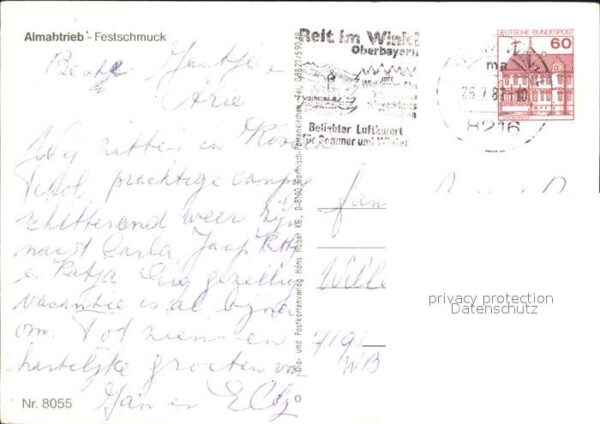 Almabtrieb - Festschmuck
Reit im Winkl
Oberbayern
DEUTSCHE BUNDESPOST
60
25.7.87-10
8216
Beliebter Luftkurort
für Sommer und Winter
Beste Jantje en
Arie
Wij zitten in Kossen
Tirol prachtige camping
schitterend weer zijn
naast Carla, Jaap Kitty
en Katja Erg gezellig
vacantie is al bijna
om. Tot ziens en
hartelijke groeten van
Jan en Elly
Fam
Wille
WB
privacy protection
Datenschutz
Dia- und Postkartenverlag Hans Huber KG., D-8100 Garmisch-Partenkirchen, Tel. 08821/59048
Nr. 8055